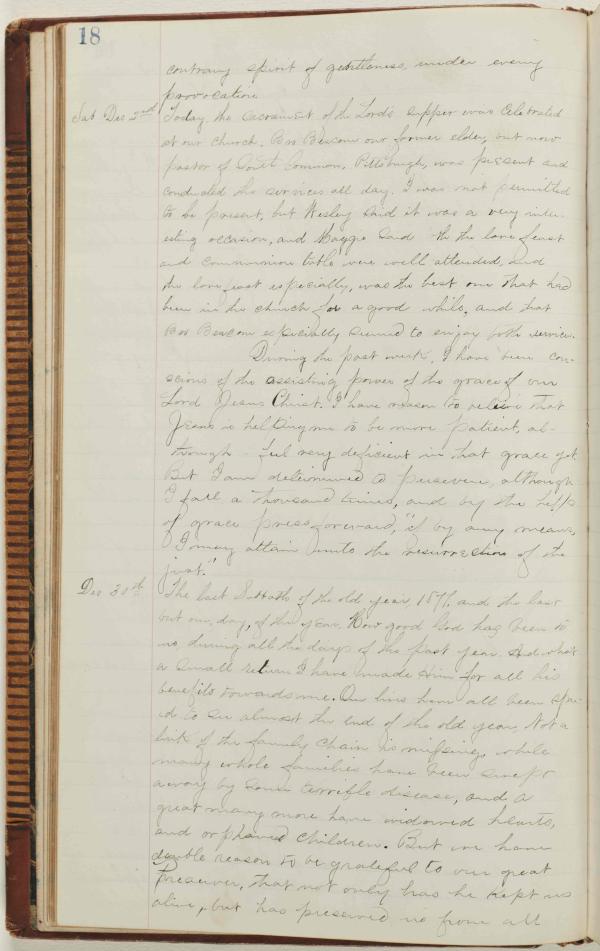 18
contrary spirit of gentleness, under every
provocation
Sat Dec 2nd Today the sacrament of the Lord's supper was Celebrated
at our church. Bro Beacom our former elder, but now
pastor of South Common, Pittsburgh, was present and
conducted the services all day. I was not permitted
to be present, but Wesley said it was a very inter-
esting occasion, and Maggie said th the love feast
and communion table were well attended, and
the love feast especially, was the best one that had
been in the church for a good while, and that
Bro Beacom especially seemed to enjoy both services.
During the past week, I have been con-
scious of the assisting power of the grace of our
Lord Jesus Christ. I have reason to believe that
Jesus is helping me to be more patient, al-
though I feel very deficient in that grace yet.
But I am determined to persevere, although
I fall a thousand times, and by the help
of grace press forward, "if by any means,
I may attain unto the resurrection of the
just."
Dec 30th The last Sabbath of the old year, 1877, and the last
but one, day, of the year. How good God has been to
us, during all the days of the past year. And what
a small return I have made Him for all his
benefits towards me. Our lives have all been spar-
ed to see almost the end of the old year, Not a
link of the family chain is missing, while
many whole families have been swept
away by some terrible disease, and a
great many more have widowed hearts,
and orphaned children. But we have
double reason to be grateful to our great
Preserver, that not only has he kept us
alive, but has preserved us from all